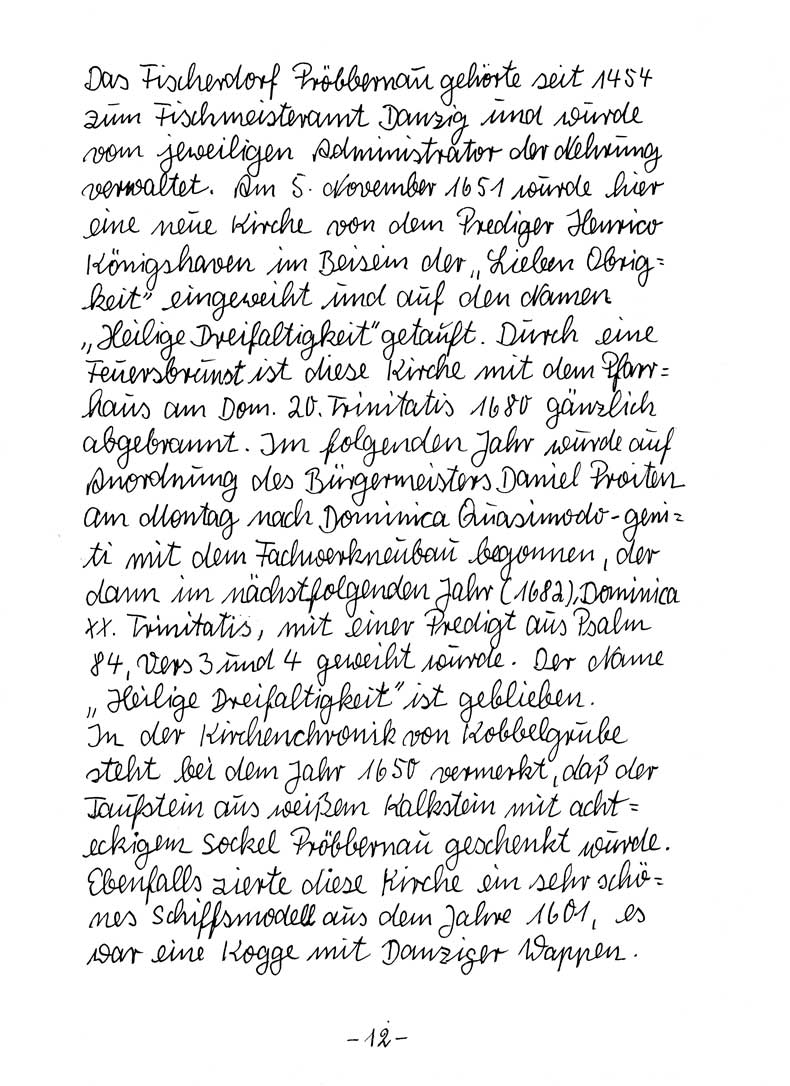 Das Fischerdorf Pröbbernau gehörte seit 1454
zum Fischmeisteramt Danzig und wurde
vom jeweiligen Administrator der Nehrung
verwaltet. Am 5. November 1651 wurde hier
eine neue Kirche von dem Prediger Henrico
Königshaven im Beisein der „Lieben Obrig=
keit" eingeweiht und auf den Namen
„Heilige Dreifaltigkeit" getauft. Durch eine
Feuersbrunst ist diese Kirche mit dem Pfarr=
haus am Dom. 20. Trinitatis 1680 gänzlich
abgebrannt. Im folgenden Jahr wurde auf
Anordnung des Bürgermeisters Daniel Proiten
am Montag nach Dominica Quasimodo-geni=
ti mit dem Fachwerkneubau begonnen, der
dann im nächstfolgenden Jahr (1682), Dominica
XX. Trinitatis, mit einer Predigt aus Psalm
84, Vers 3 und 4 geweiht wurde. Der Name
„Heilige Dreifaltigkeit" ist geblieben.
In der Kirchenchronik von Kobbelgrube
steht bei dem Jahr 1650 vermerkt, daß der
Taufstein aus weißem Kalkstein mit acht=
eckigem Sockel Pröbbernau geschenkt wurde.
Ebenfalls zierte diese Kirche ein sehr schö=
nes Schiffsmodell aus dem Jahre 1601, es
war eine Kogge mit Danziger Wappen.
-12-